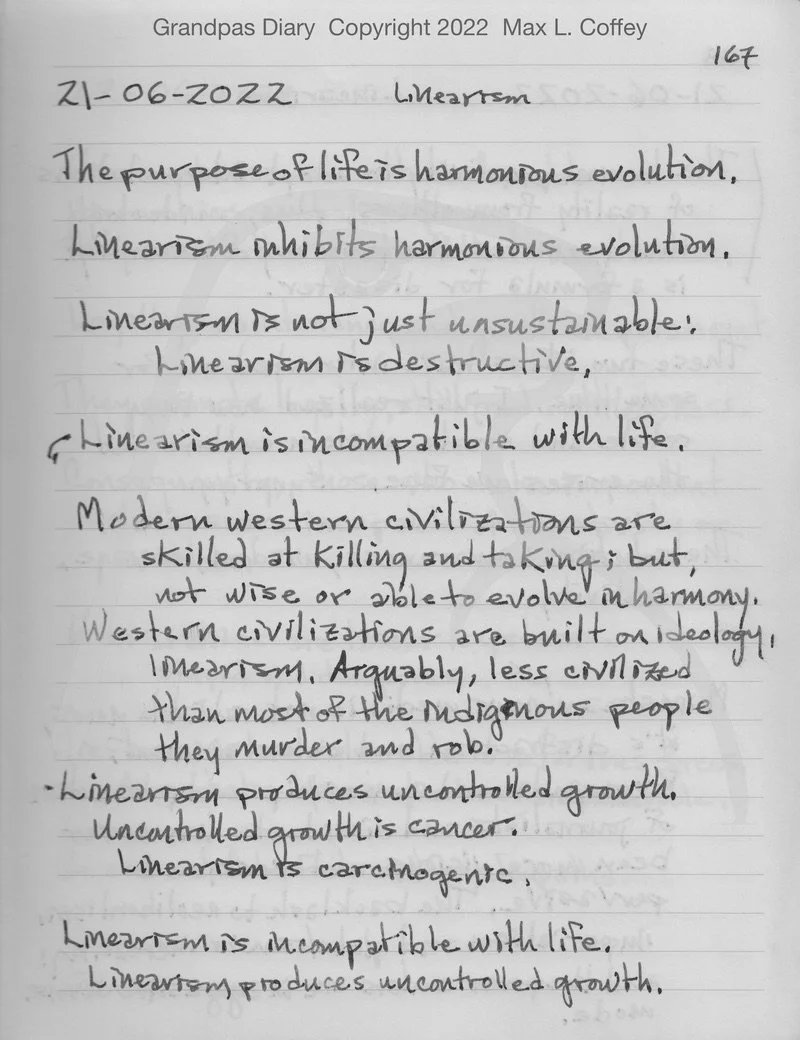 Grandpas Diary Copyright 2022 Max L. Coffey
167
21-06-2022 Linearism
The purpose of life is harmonious evolution.
Linearism inhibits harmonious evolution.
Linearism is not just unsustainable:
Linearism is destructive,
Linearism is incompatible with life.
Modern western civilizations are
skilled at killing and taking; but,
not wise or able to evolve in harmony.
Western civilizations are built on ideology,
linearism. Arguably, less civilized
than most of the indigenous people
they murder and rob.
Linearism produces uncontrolled growth.
Uncontrolled growth is cancer.
Linearism is carcinogenic.
Linearism is incompatible with life.
Linearism produces uncontrolled growth.